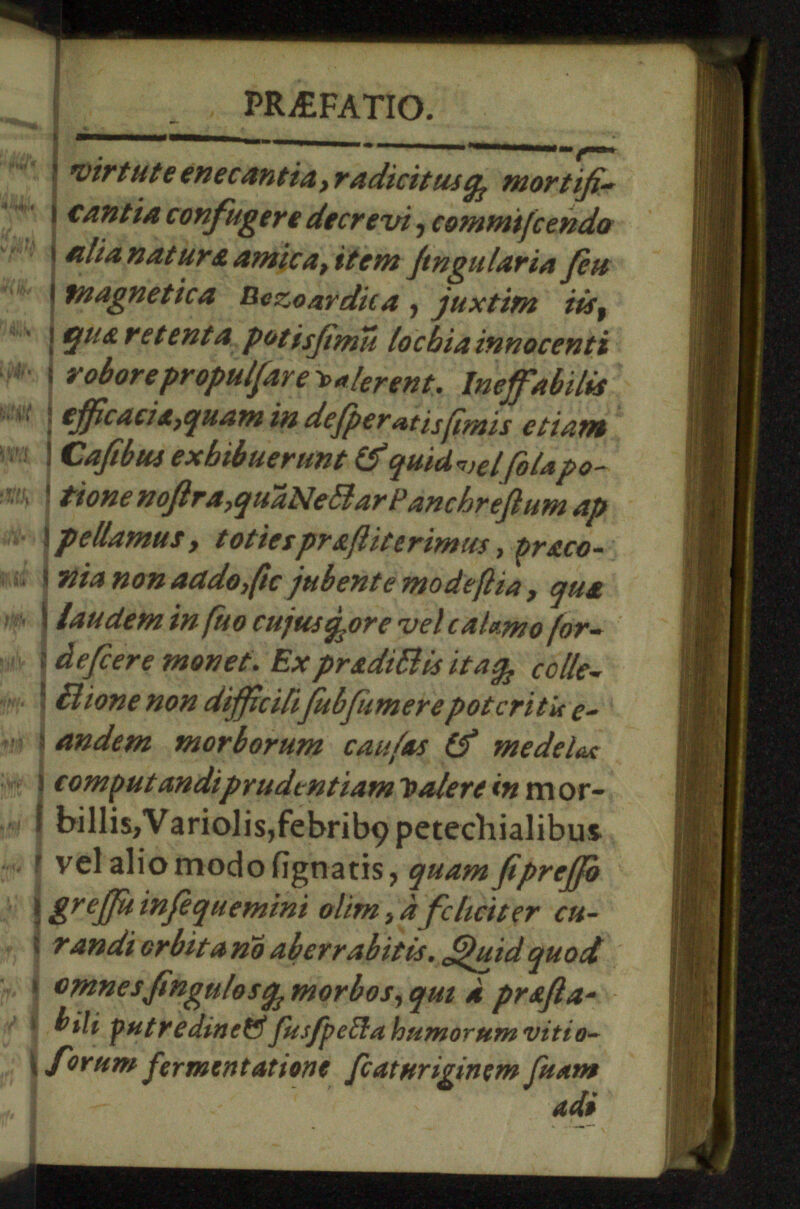 PRÆFATIO.
virtute enecantia, radicitusq; mortifi-
cantia confugere decrevi, commiſcendo
alia naturæ amica, item ſingularia ſeu
magnetica Bezoardica, juxtim iis,
quæ retenta potisſimũ lochia innocenti
robore propulſare valerent. Ineffabilis
efficaciæ, quam in deſperatisſimis etiam
Caſibus exhibuerunt & quid vel ſola po-
tione noſtra, quã Nectar Panchreſtum ap
pellamus, toties præſtiterimus, præco-
nia non addo, ſic jubente modeſtia, quæ
laudem in ſuo cujusq; ore vel calamo ſor-
deſcere monet. Ex prædictis itaq; colle-
ctione non difficili ſubſumere poteritis e-
andem morborum cauſas & medelas
computandi prudentiam valere in mor-
billis, Variolis, febrib9 petechialibus
vel alio modo ſignatis, quam ſi preſſo
greſſu inſequemini olim, à feliciter cu-
randi orbita nõ aberrabitis. Quid quod
omnes ſingulosq; morbos, qui à præſta-
bili putredine & ſusſpecta humorum vitio-
ſorum fermentatione ſcaturiginem ſuam
adi